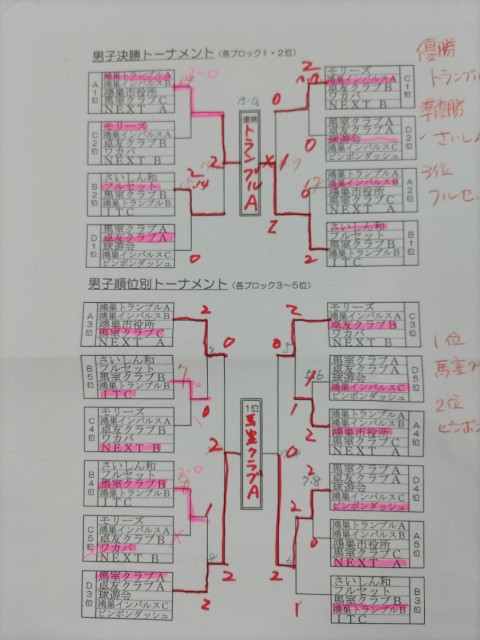 男子決勝トーナメント（各ブロック1・2位）
A1位
鴻巣トランプルA
鴻巣インパルスA
鴻巣市役所
馬室クラブC
NEXT A
C2位
モリーズ
鴻巣インパルスA
卓友クラブB
ワカバ
NEXT B
B2位
さいしん和
フルセット
馬室クラブB
鴻巣トランプルB
ITC
D1位
馬室クラブA
卓友クラブA
球遊会
鴻巣インパルスC
ピンポンダッシュ
優勝
トランプルA
モリーズ
鴻巣インパルスA
卓友クラブB
ワカバ
NEXT B
C1位
馬室クラブA
卓友クラブA
球遊会
鴻巣インパルスC
ピンポンダッシュ
D2位
鴻巣トランプルA
鴻巣インパルスA
鴻巣市役所
馬室クラブC
NEXT A
A2位
さいしん和
フルセット
馬室クラブB
鴻巣トランプルB
ITC
B1位
優勝
トランプル
準優勝
さいしん
3位
フルセッ
男子順位別トーナメント（各ブロック3～5位）
A3位
鴻巣トランプルA
鴻巣インパルスA
鴻巣市役所
馬室クラブC
NEXT A
B5位
さいしん和
フルセット
馬室クラブB
鴻巣トランプルB
ITC
C4位
モリーズ
鴻巣インパルスA
卓友クラブB
ワカバ
NEXT B
B4位
さいしん和
フルセット
馬室クラブB
鴻巣トランプルB
ITC
C5位
モリーズ
鴻巣インパルスA
卓友クラブB
ワカバ
NEXT B
D3位
馬室クラブA
卓友クラブA
球遊会
鴻巣インパルスC
ピンポンダッシュ
1位
馬室クラブA
モリーズ
鴻巣インパルスA
卓友クラブB
ワカバ
NEXT B
C3位
馬室クラブA
卓友クラブA
球遊会
鴻巣インパルスC
ピンポンダッシュ
D5位
鴻巣トランプルA
鴻巣インパルスA
鴻巣市役所
馬室クラブC
NEXT A
A4位
馬室クラブA
卓友クラブA
球遊会
鴻巣インパルスC
ピンポンダッシュ
D4位
鴻巣トランプルA
鴻巣インパルスA
鴻巣市役所
馬室クラブC
NEXT A
A5位
さいしん和
フルセット
馬室クラブB
鴻巣トランプルB
ITC
B3位
1位
馬室ク
2位
ピンポン